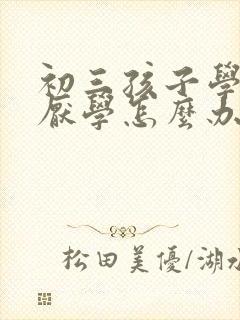 初三孩子學
厭學怎麼办
松田美優/湖